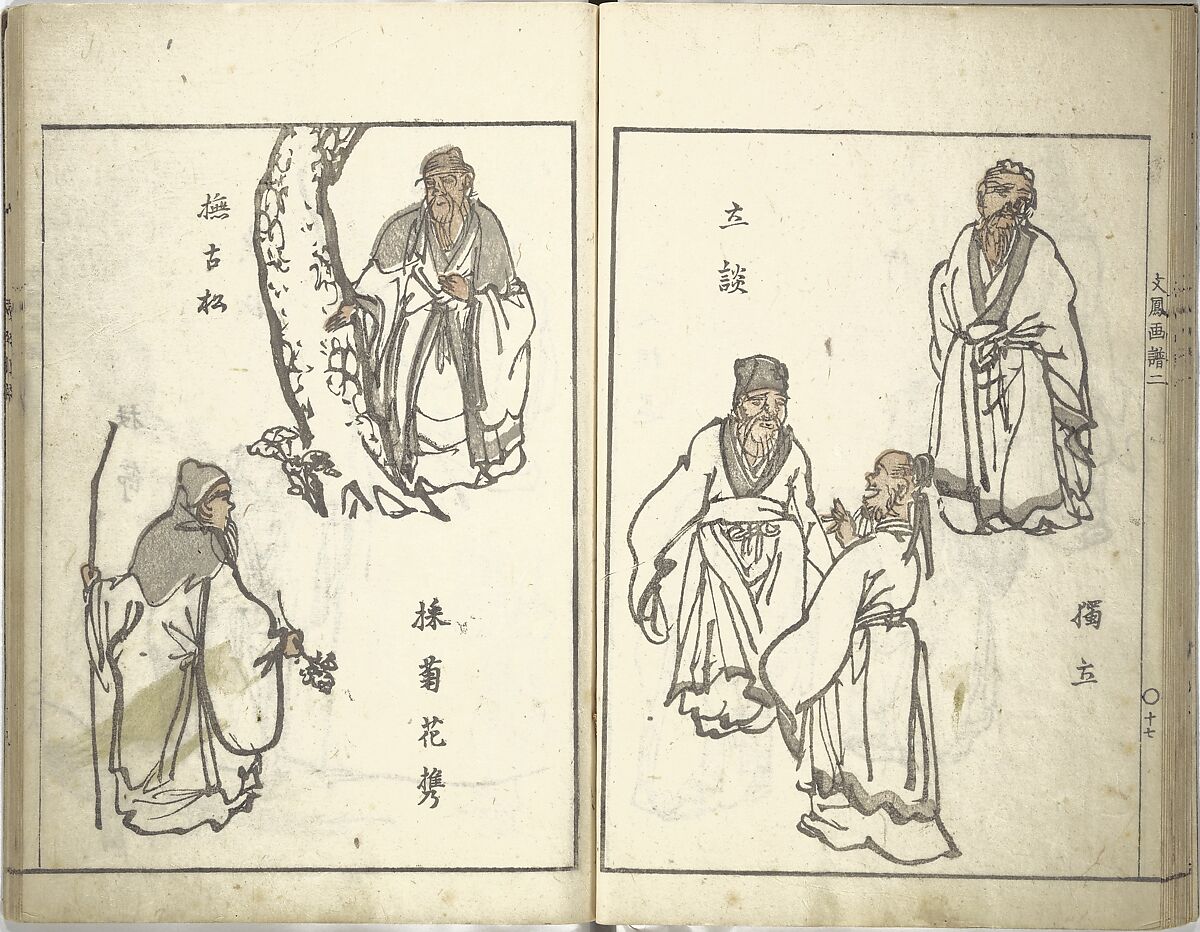 文鳳画譜二
〇十七
獨立
立談
撫古松
採菊花携